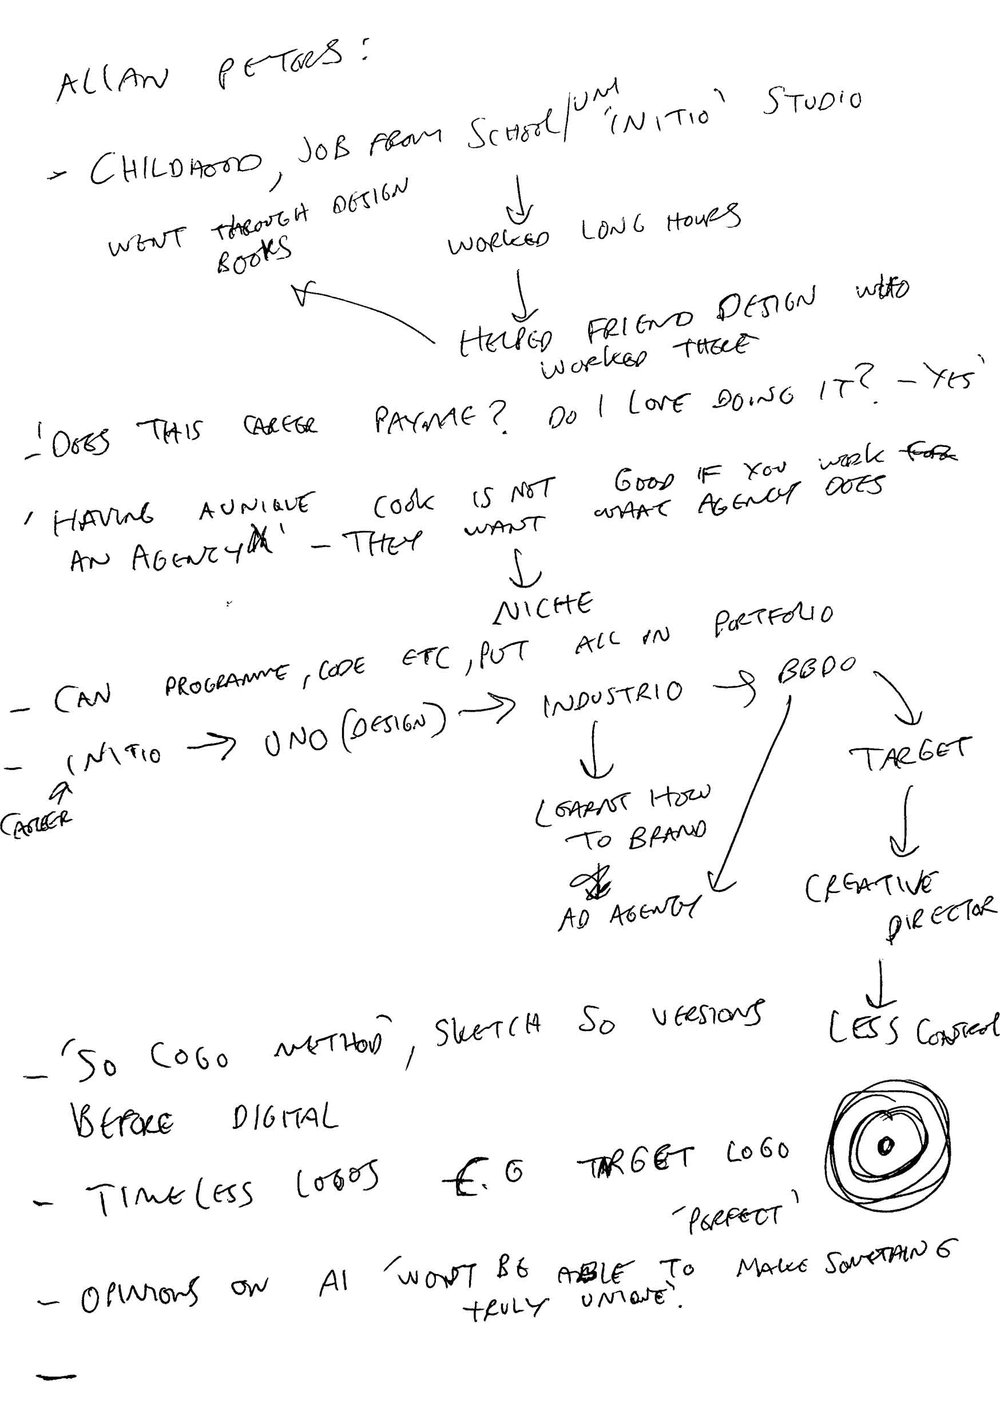 ALLAN PETERS:
- CHILDHOOD, JOB FROM SCHOOL/UNI 'INITIO' STUDIO
WENT THROUGH DESIGN
BOOKS
WORKED LONG HOURS
HELPED FRIEND DESIGN WHO
WORKED THERE
- 'DOES THIS CAREER PAY ME? DO I LOVE DOING IT? - YES'
'HAVING A UNIQUE LOOK IS NOT GOOD IF YOU WORK FOR
AN AGENCY' - THEY WANT WHAT AGENCY DOES
NICHE
- CAN PROGRAMME, CODE ETC, PUT ALL IN PORTFOLIO
- INITIO → UNO (DESIGN) → INDUSTRIO → BBDO
CAREER
TARGET
LEARNT HOW
TO BRAND
AD AGENCY
CREATIVE
DIRECTOR
LESS CONTROL
- '50 LOGO METHOD', SKETCH 50 VERSIONS
BEFORE DIGITAL
- TIMELESS LOGOS E.G TARGET LOGO
'PERFECT'
- OPINIONS ON AI 'WON'T BE ABLE TO MAKE SOMETHING
TRULY UNIQUE'.
-